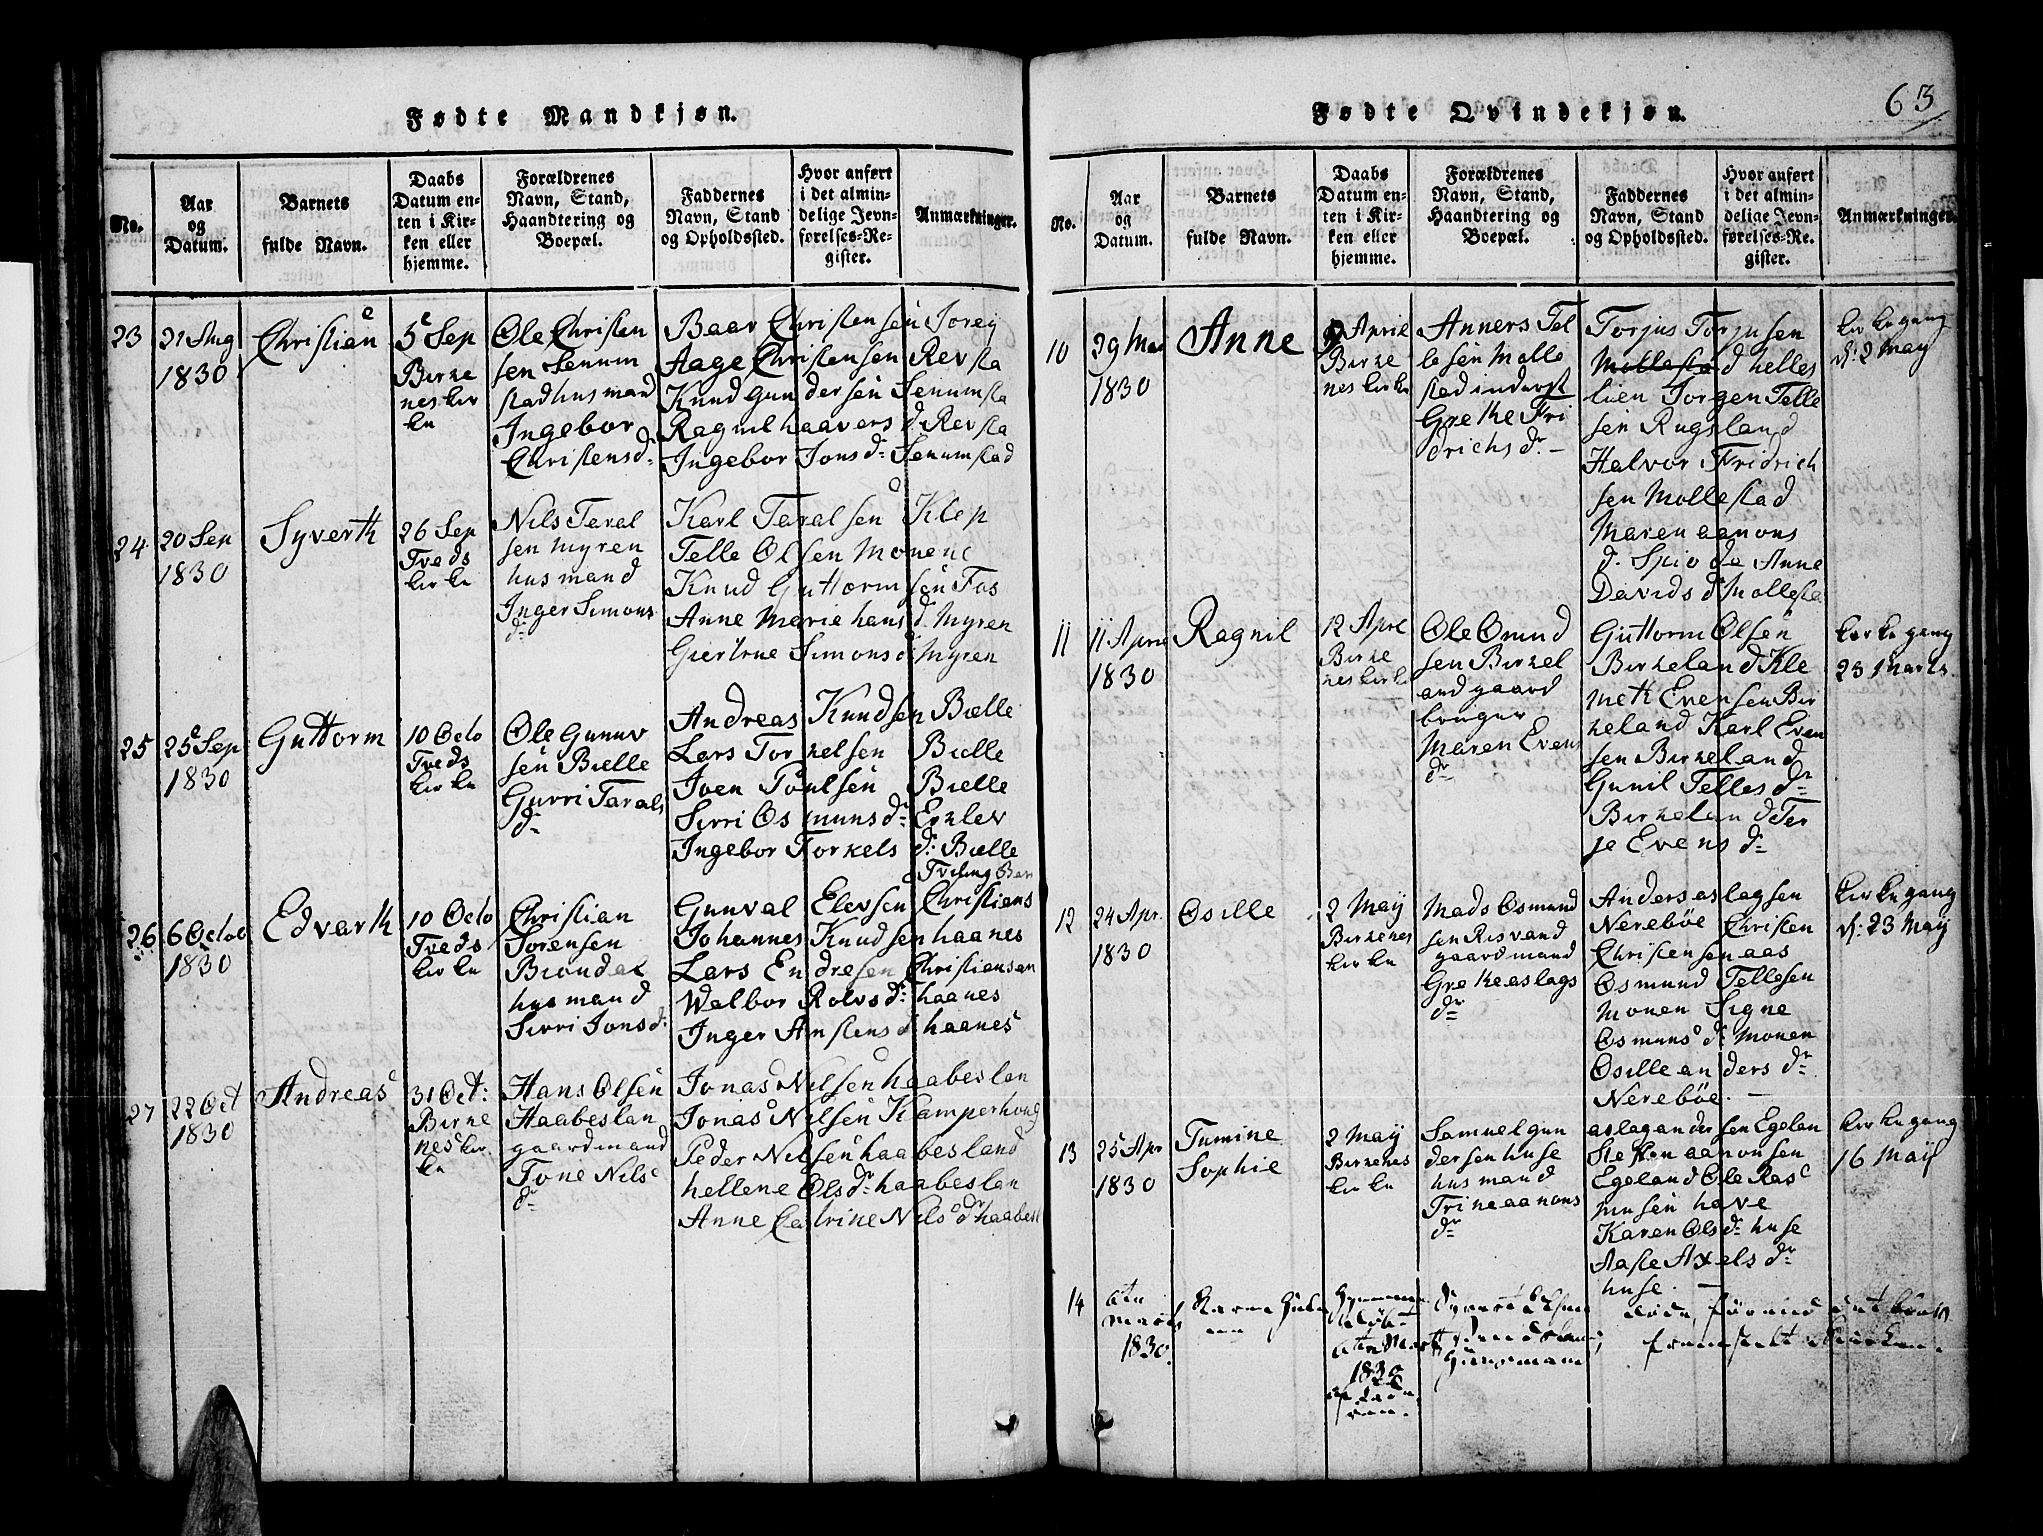 Fødte Mandkjøn.
No.
Aar
og
Datum.
Barnets
fulde Navn.
Daabs
Datum en-
ten i Kir-
ken eller
hjemme.
Forældrenes
Navn, Stand,
Haandtering og
Boepæl.
Faddernes
Navn, Stand
og Opholdssted.
Hvor anført
i det almin-
delige Jevn-
førelses-Re-
gister.
Anmærkninger.
23
21 Aug
1830
Christian
5 Sep
Birke
nes kir
ke
Ole Christen
sen Senum
stad husmand
Ingebor
Christensd:
Baar Christensen
Aage Christensen Revsta
Knud Gundersen Senumsta
Ragnil haavers d. Revsta
Ingebor Jonsd: Senumstad
24
20 Sep
1830
Syverth
26 Sep
Tveds
kirke
Nils Taral
sen Myren
husmand
Inger Simons
d:
Karl Taralsen Klep
Telle Olsen Monene
Knud Guttormsen Fos
Anne Marie hans d. Myren
Giertrue Simonsd. Myren
25
25 Sep
1830
Guttorm
10 Octo
Tveds
kirke
Ole Gunuv
sen Bielle
Gurri Tarals
d:
Andreas Knudsen Bielle
Lars Torkelsen Bielle
Iven Poulsen Bielle
Sirri Osmunsdr: Erklev
Ingebor Torkels d: Bielle
26
6 Octob
1830
Edvarth
10 Octo
Tveds
kirke
Christian
Sørensen
Biøndal
husmand
Sirri Jonsd:
Gunval Elevsen Christians
Johannes Knudsen haanes
Lars Endresen Christiansan
Walbor Rolvsdr: haanes
Inger Anstensd haanes
27
22 Oct
1830
Andreas
31 Oct:
Birke
nes kir
ke
Hans Olsen
Haabeslan
gaardmand
Tone Nils
dr
Jonas Nilsen haabeslan
Jonas Nilsen Kamperhoug
Peder Nilsen haabesland
hellene Olsdr haabeslan
Anne Catrine Nilsdr haabesl
63
Fødte Qvindekjøn.
No.
Aar
og
Datum.
Barnets
fulde Navn.
Daabs
Datum en-
ten i Kir-
ken eller
hjemme.
Forældrenes
Navn, Stand,
Haandtering og
Boepæl.
Faddernes
Navn, Stand
og Opholdssted.
Hvor anført
i det almin-
delige Jevn-
førelses-Re-
gister.
Anmærkninger.
10
29 Mar
1830
Anne
Aprie
Birke
nes kirke
Anners Tel
lesen Molle
stad inderst
Grethe Fri
drichs dr. –
Torjus Torjusen
Mollestad helles
lien Jorgen Telle
sen Rugsland
Halvor Fridrich
sen Mollestad
Maren aanons
d. Spiode Anne
Davidsd Mollesta
kirkegang
d: 2 May
11
11 Aprie
1830
Ragnil
12 Apre
Birke
nes kirke
Ole Omund
sen Birkel
and gaard
bruger
Maren Evens
dr
Guttorm Olsen
Birkeland Kle
meth Evensen Bir
keland Karl Even
sen Birkeland
Gunil Telles dr
Birkeland Ter
je Evens d:
kirkegang
23 Marts
12
24 Apr.
1830
Osille
2 May
Birkenes
kirke
Mads Osmund
sen Risvand
gaardmand
Grethe aslags
dr
Anders aslagsen
Nerebøe Christen
Christensen aas
Osmund Tellesen
Monen Signe
Osmunsdr Monen
Osille anders dr.
Nerebøe. –
kirkegang
d: 23 May
13
25 Apr
1830
Tumine
Sophie
2 May
Birkenes
kirke
Samuel gun
dersen huse
husmand
Trine aanons
dr
aslag andersen Egelan
Steffen aanonsen
Egeland Ole Ras
musen have
Karen Olsdr huse
Aaste Axels dr
huse. –
kirkegang
16 May
14
Marts
1830.
Marts
1830